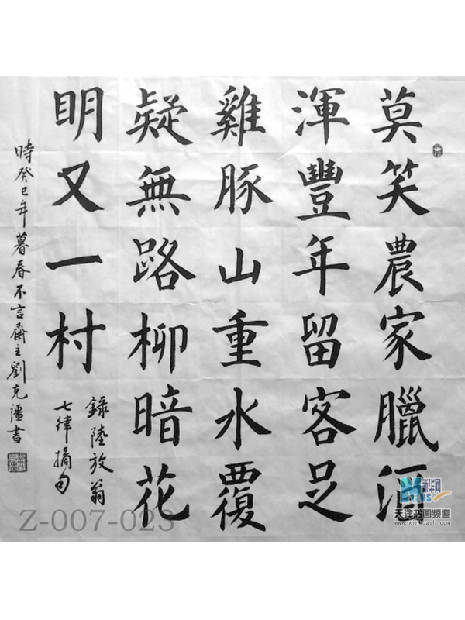 莫笑農家臘酒
渾豐年留客足
雞豚山重水覆
疑無路柳暗花
明又一村
錄陸放翁
七律摘句
時癸巳年暮春不言齋主劉克疆書
Z-007-023